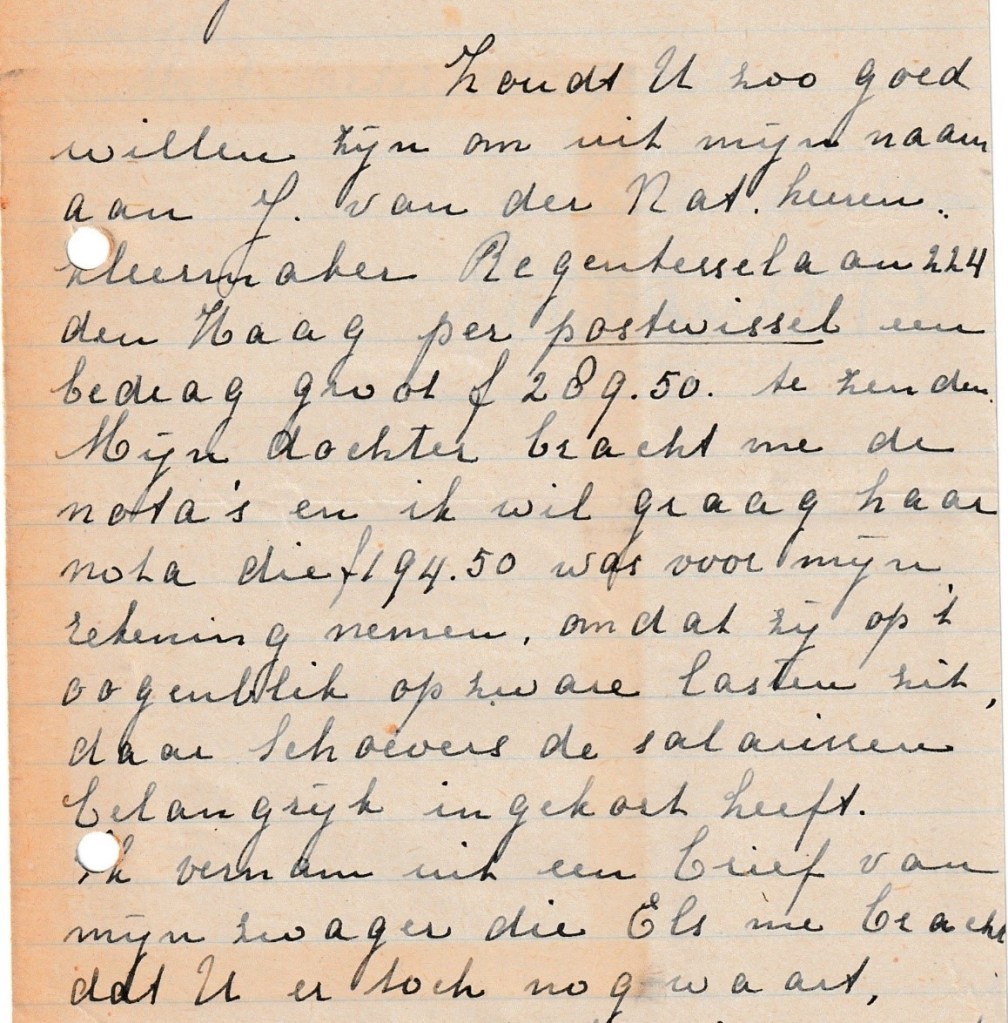 Zoudt U zoo goed
willen zijn om uit mijn naam
aan J. van der Nat. heeren.
kleermaker Regentesselaan 224
den Haag per postwissel een
bedrag groot f 289.50. te zenden.
Mijn dochter bracht me de
nota's en ik wil graag haar
nota die f 194.50 was voor mijn
rekening nemen, omdat zij op 't
oogenblik op zware lasten zit,
daar Schoevers de salarissen
belangrijk ingekort heeft.
Ik vernam uit een brief van
mijn zwager die Els me bracht
dat U er toch nog waart,